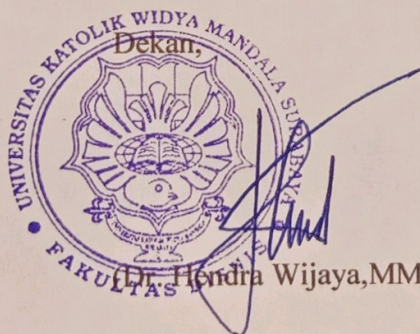 Dekan,
UNIVERSITAS KATOLIK WIDYA MANDALA SURABAYA
FAKULTAS BISNIS
(Dr. Hendra Wijaya,MM